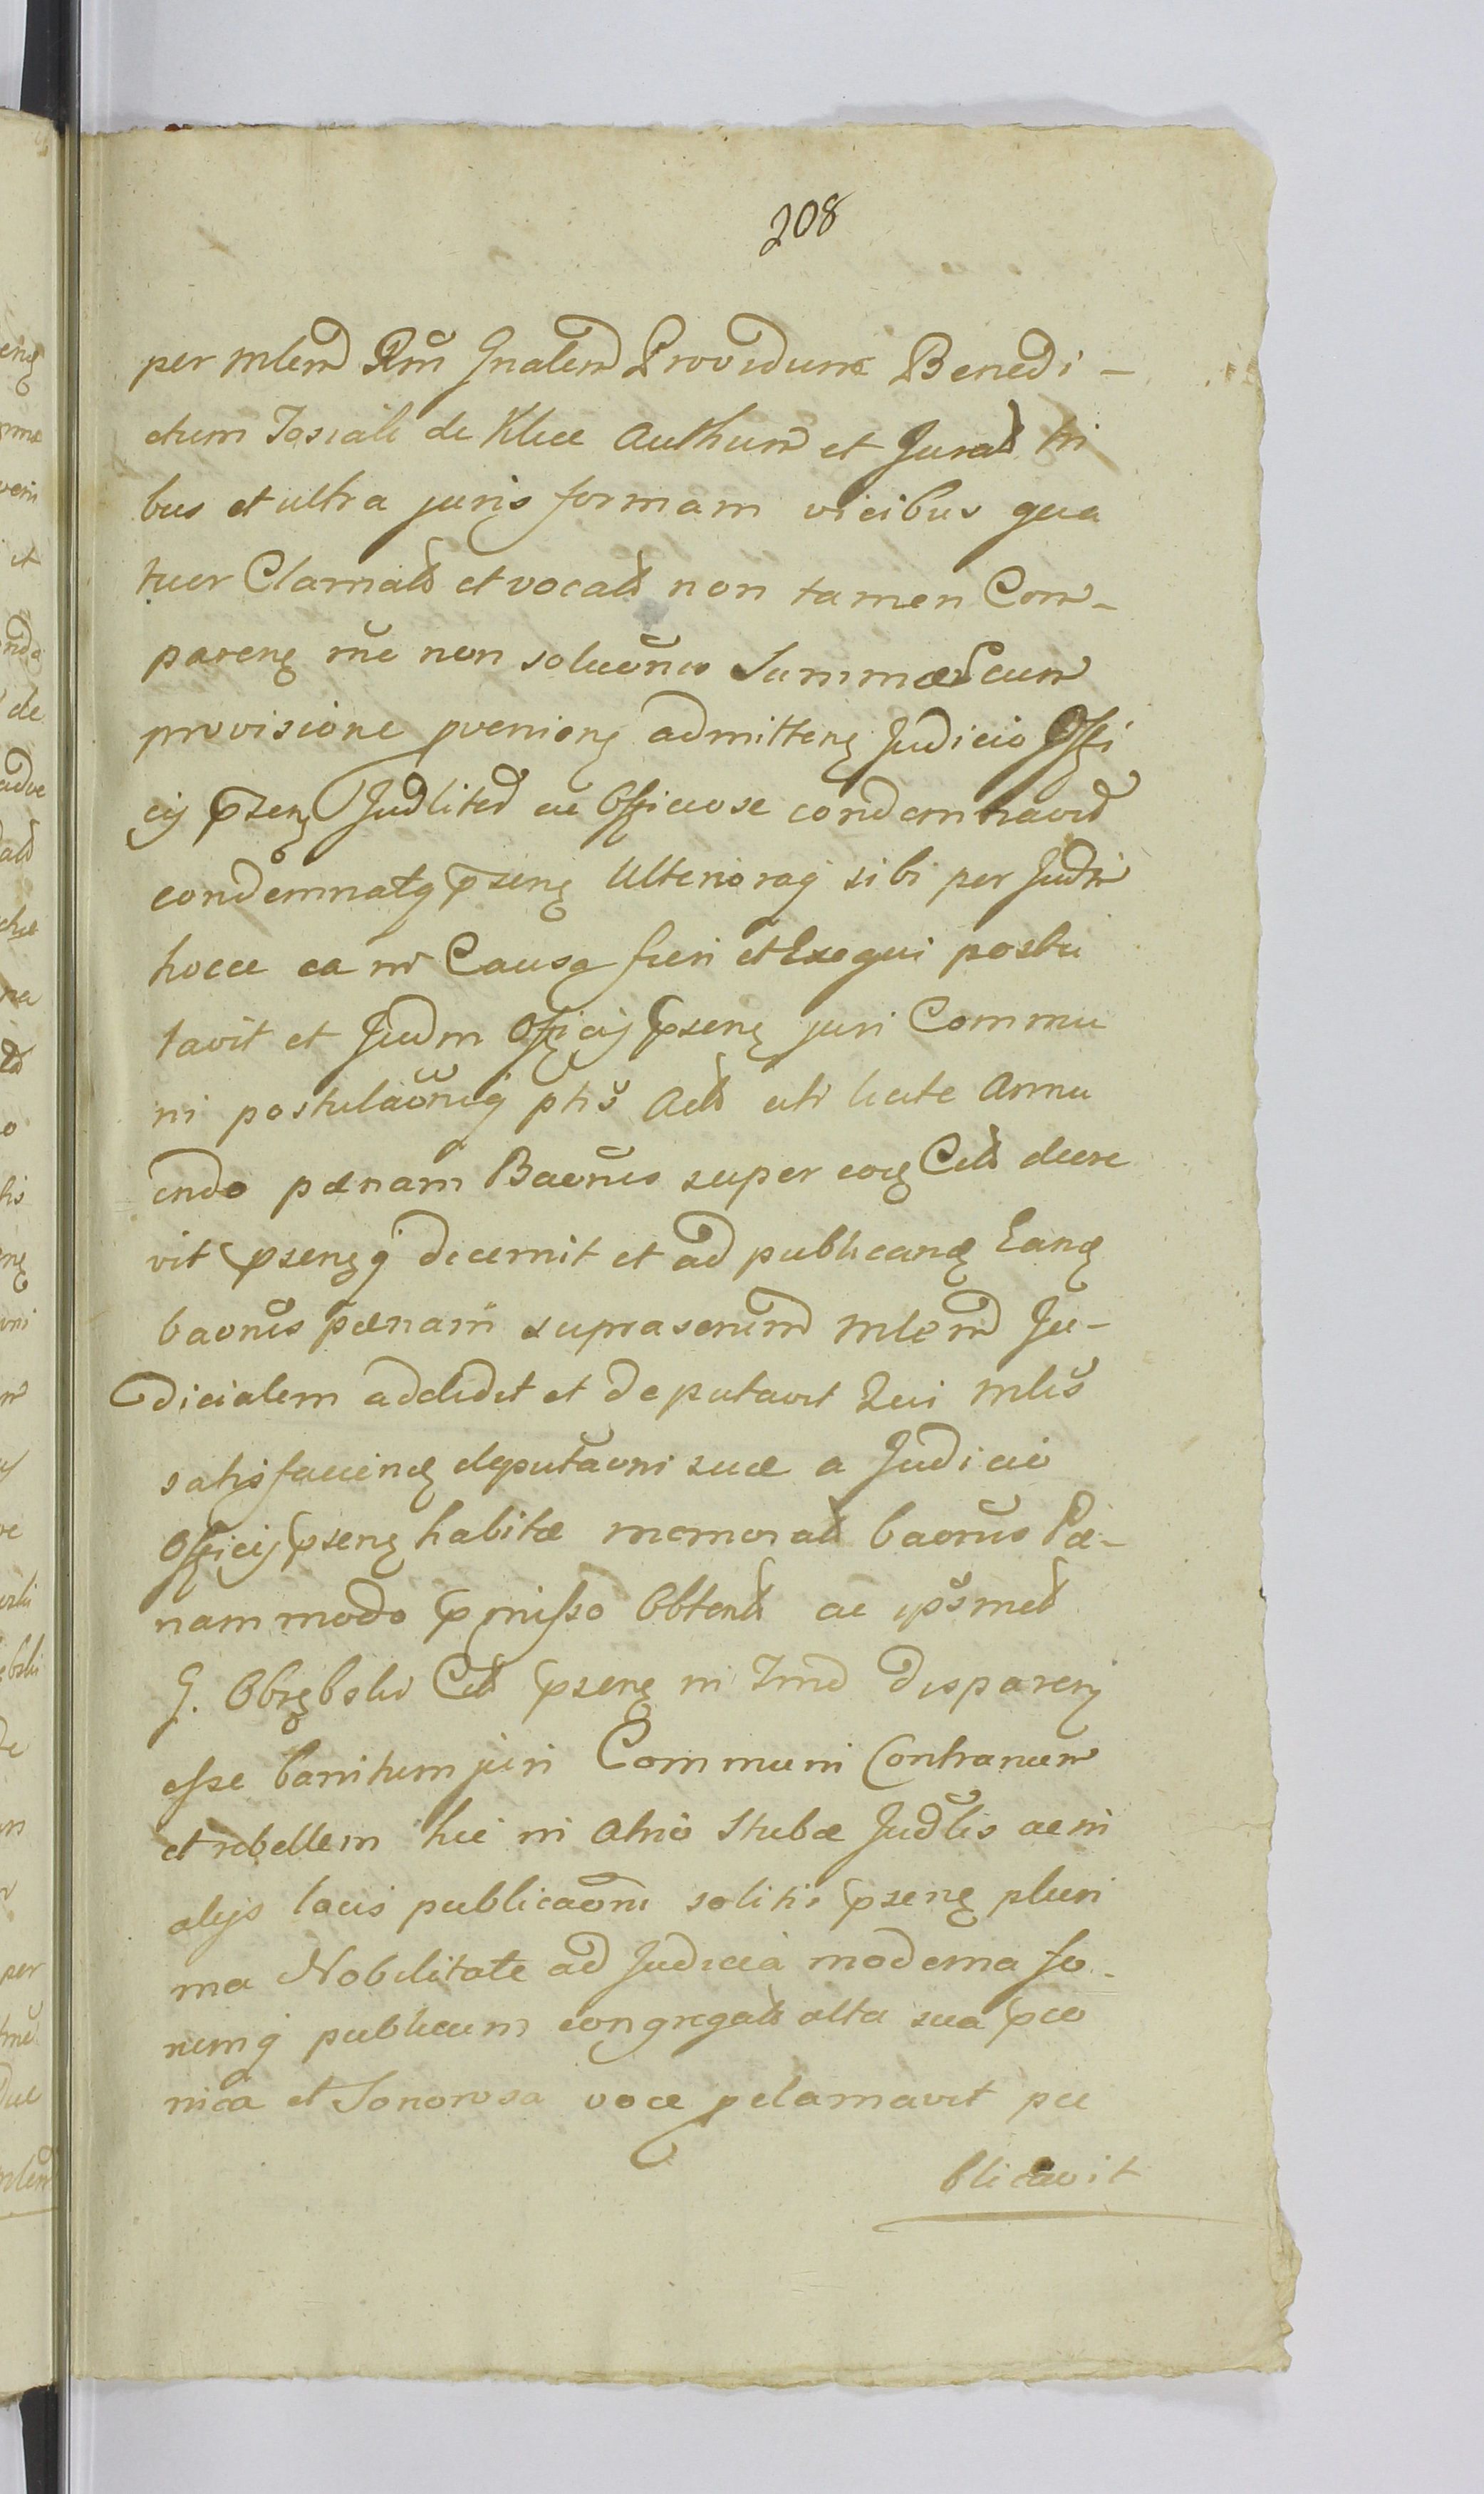 208
per mlem Rm Gnalem Providum Benedi-
ctum Tosiali de Klice Authum et Jurat tri
bus et ultra juris formam vicibus qua
tuor Clamats et vocats non tamen Com-
pareng rne non soluonis Summae cum
provisione pveniong admitteng Judicio Offi
cij pseng Judlited ac Officiose condemnavit
condemnatq pseng Ulterioraq sibi per Judm
hocce ea in Causa fieri et Exequi postu
lavit et Judm Officij pseng juri Commu
ni postulaoniq ptis Acts uti licite Annu
endo paenam Baonis super eoq Cits decre
vit psengq decernit et ad publicang Eang
baonis paenam suprascrium mlem Ju-
dicialem addidit et deputavit Qui mlis
satisfacieng deputaoni suae a Judicio
Officij pseng habitae memorats baonis Pae-
nam modo pmisso Obtents ac ipsmet
G. Obrębski Cits pseng in Tmo dispareng
esse banitum juri Communi Contrarium
et rebellem hic in Atrio Stubae Judlis ac in
alijs locis publicaoni solitis pseng pluri
ma Nobilitate ad Judicia moderna fo-
rumq publicum congregats alta sua pco
nica et Sonorosa voce pclamavit pu
blicavit